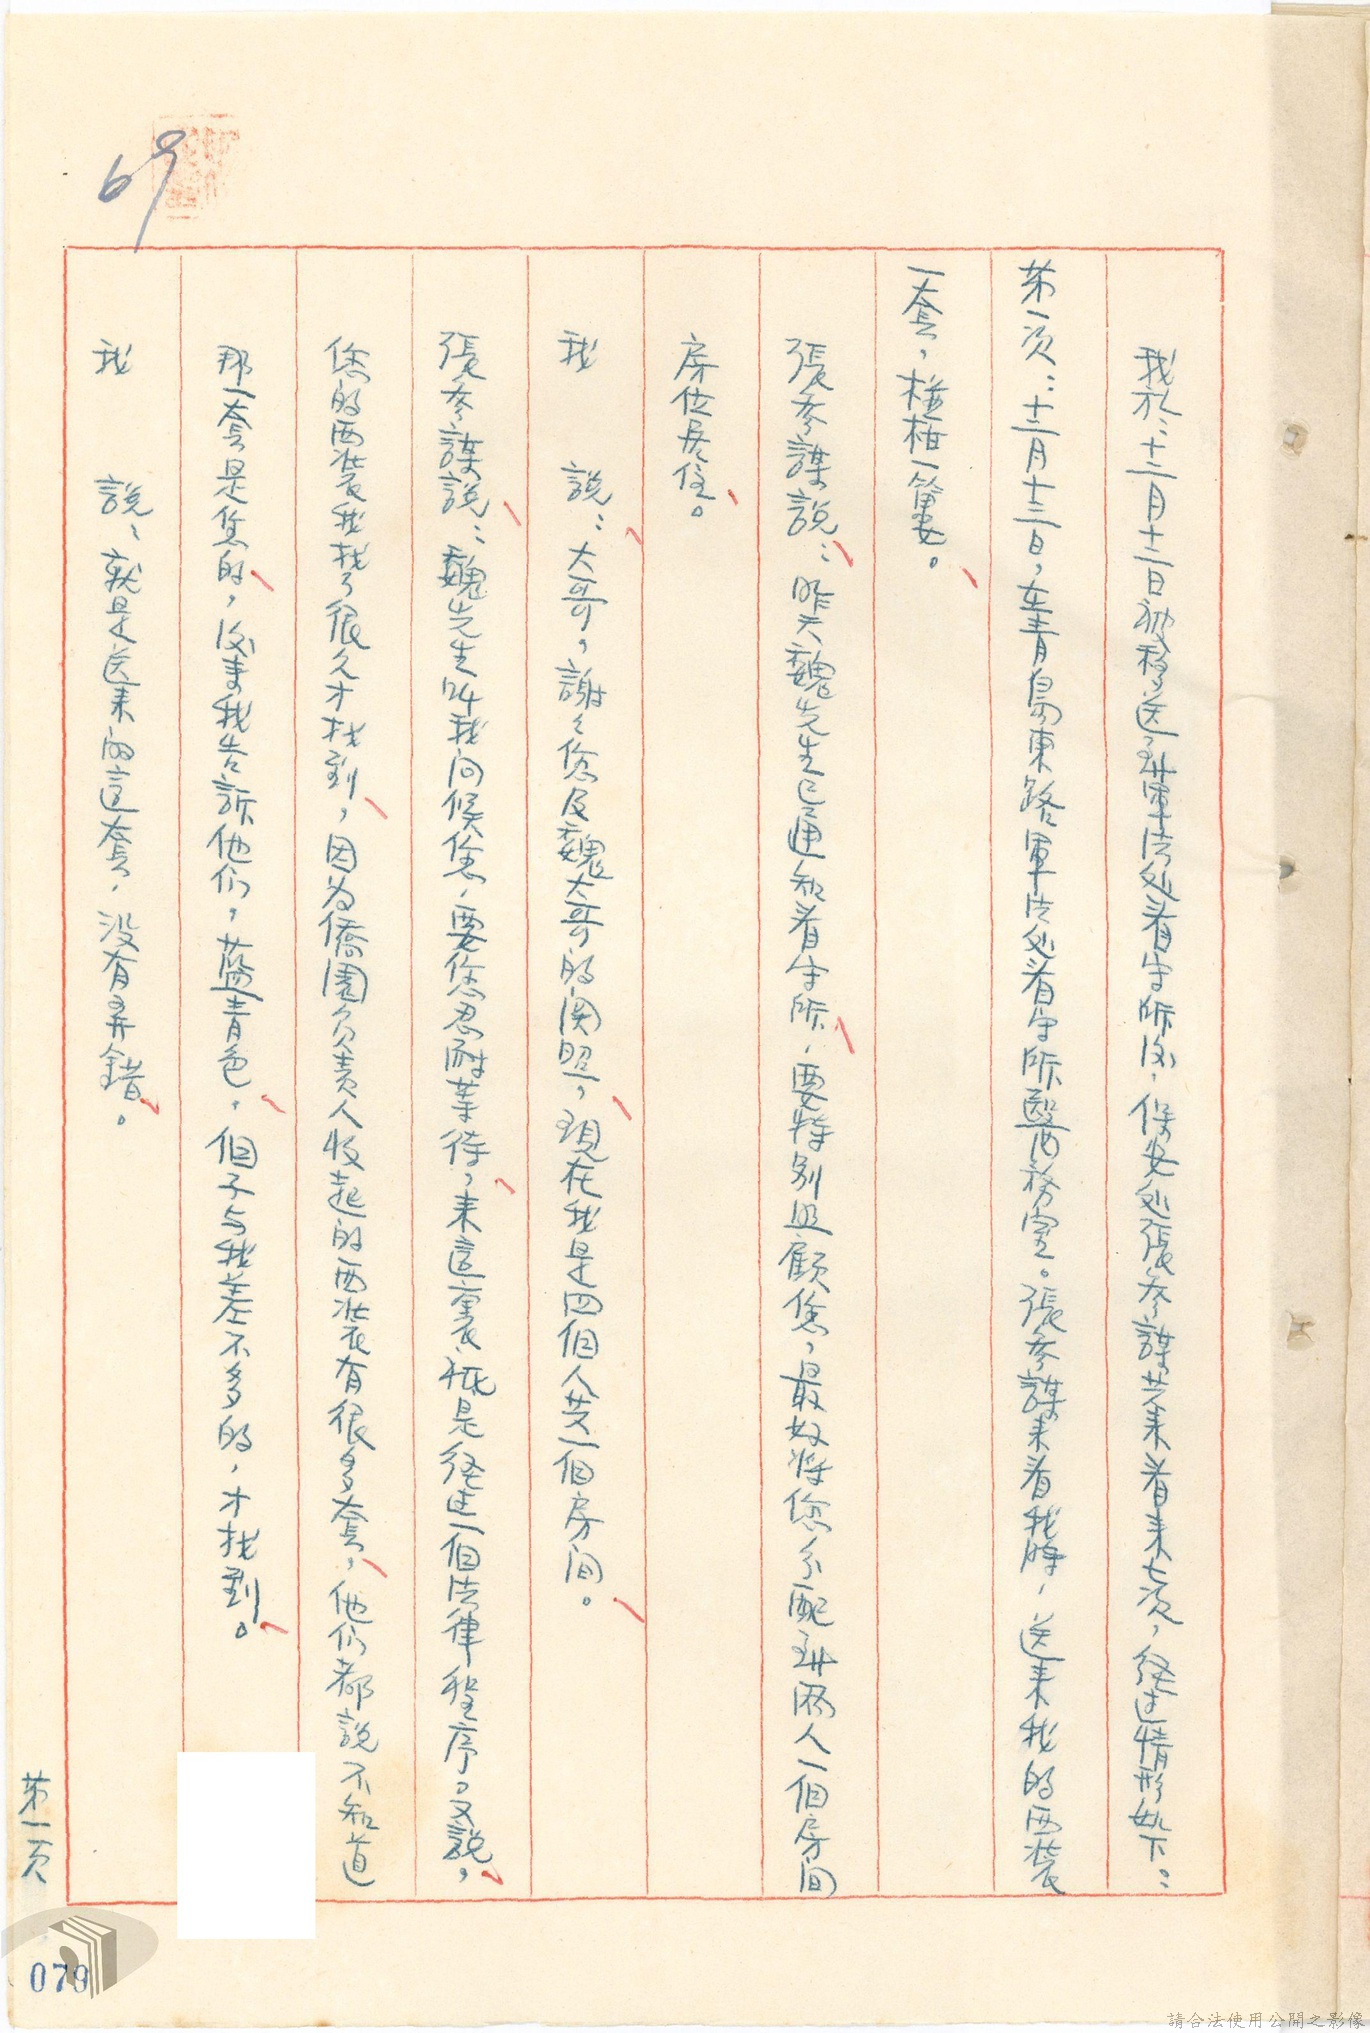 69
我於:十二月十二日被移送到軍法处看守所後,保安处張參謀共来看来七次,经过情形如下:
第一次:十二月十三日,在青島東路軍法处看守所醫務室。張參謀来看我時,送来我的西裝
一套,椪柑一簍。
張參謀說:昨天魏先生已通知看守所,要特別照顧您,最好將您分配到兩人一個房間
房位居住。
我 說:大哥,謝々您及魏大哥的関照,現在我是四個人共一個房间。
張參謀說:魏先生叫我问候您,要您忍耐等待,来這裏祗是经过一個法律程序。又說,
您的西裝我找了很久才找到,因为僑園負責人收起的西裝有很多套,他们都說不知道
那一套是您的,後来我告訴他们,藍青色,個子与我差不多的,才找到。
我 說:就是送来的這套,没有弄錯。
第一頁
079
請合法使用公開之影像